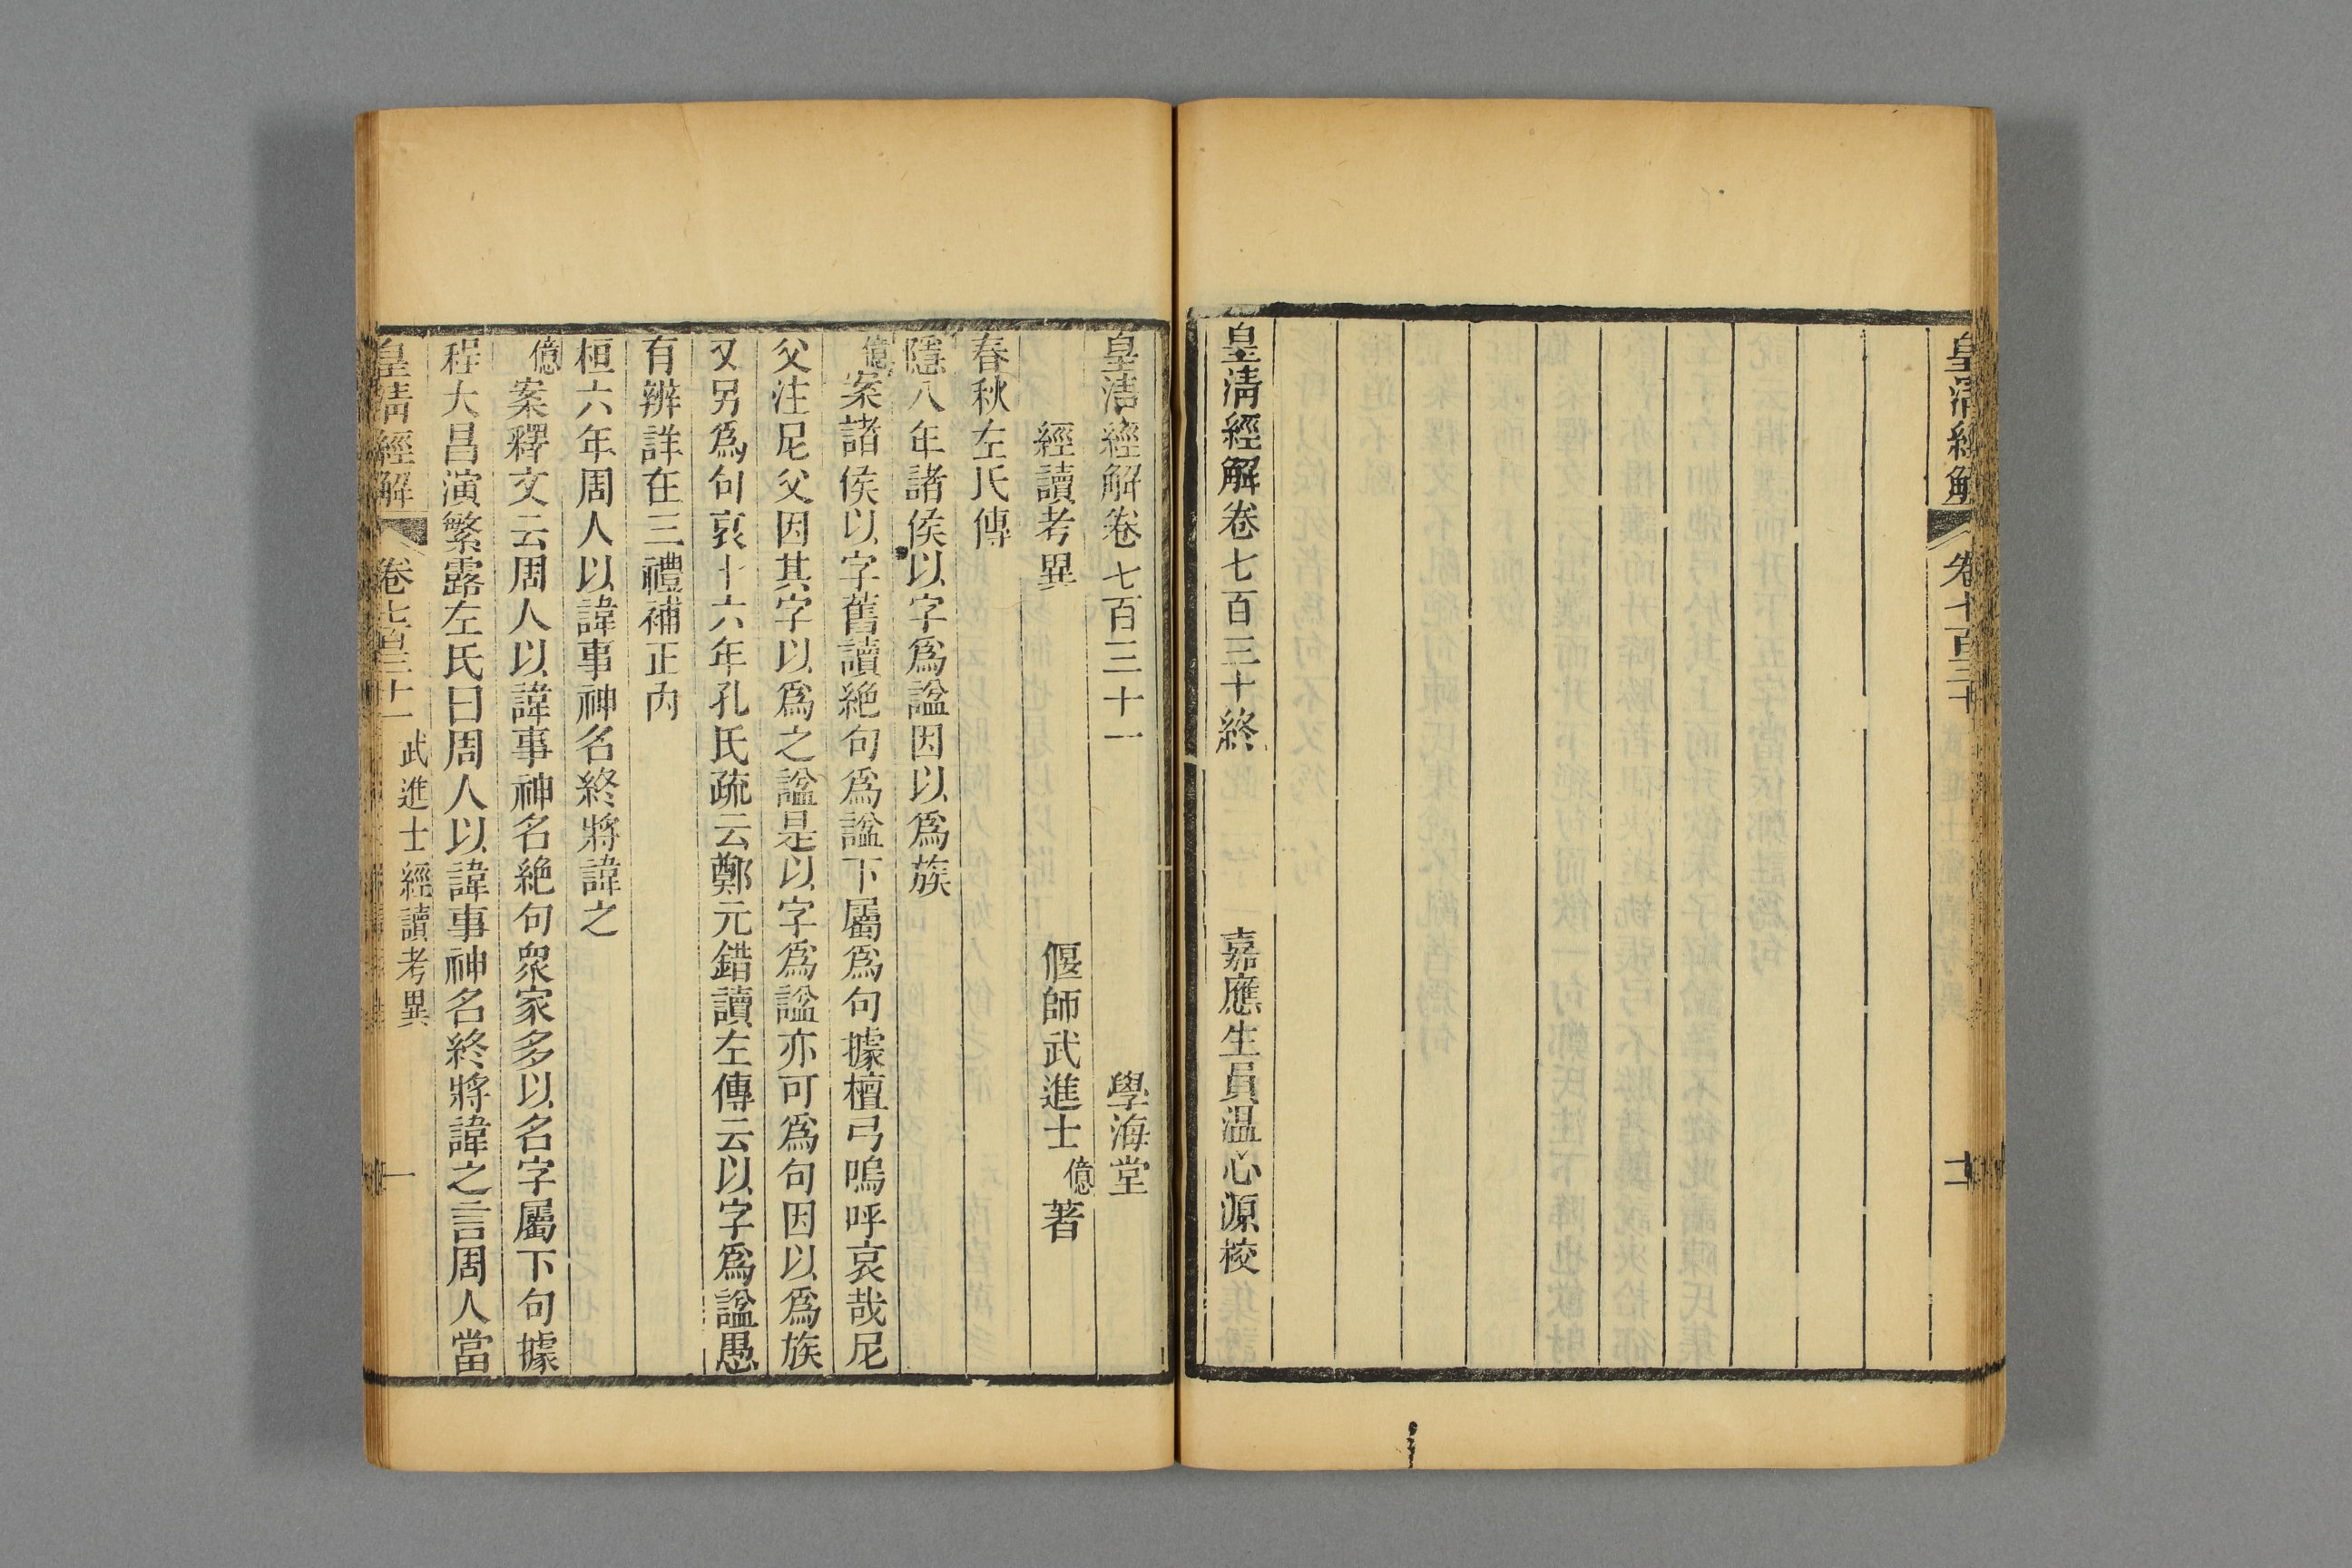 皇清經解 卷七百三十 十一
皇清經解卷七百三十終 嘉應生員温心源校
皇清經解卷七百三十一 學海堂
經讀考異 偃師武進士億著
春秋左氏傳
隱八年諸侯以字爲諡因以爲族
億案諸侯以字舊讀絶句爲諡下屬爲句據檀弓嗚呼哀哉尼
父注尼父因其字以爲之諡是以字爲諡亦可爲句因以爲族
又另爲句哀十六年孔氏疏云鄭元錯讀左傳云以字爲諡愚
有辨詳在三禮補正內
桓六年周人以諱事神名終將諱之
億案釋文云周人以諱事神名絶句衆家多以名字屬下句據
程大昌演繁露左氏曰周人以諱事神名終將諱之言周人當
皇清經解 卷七百三十一 武進士經讀考異 一